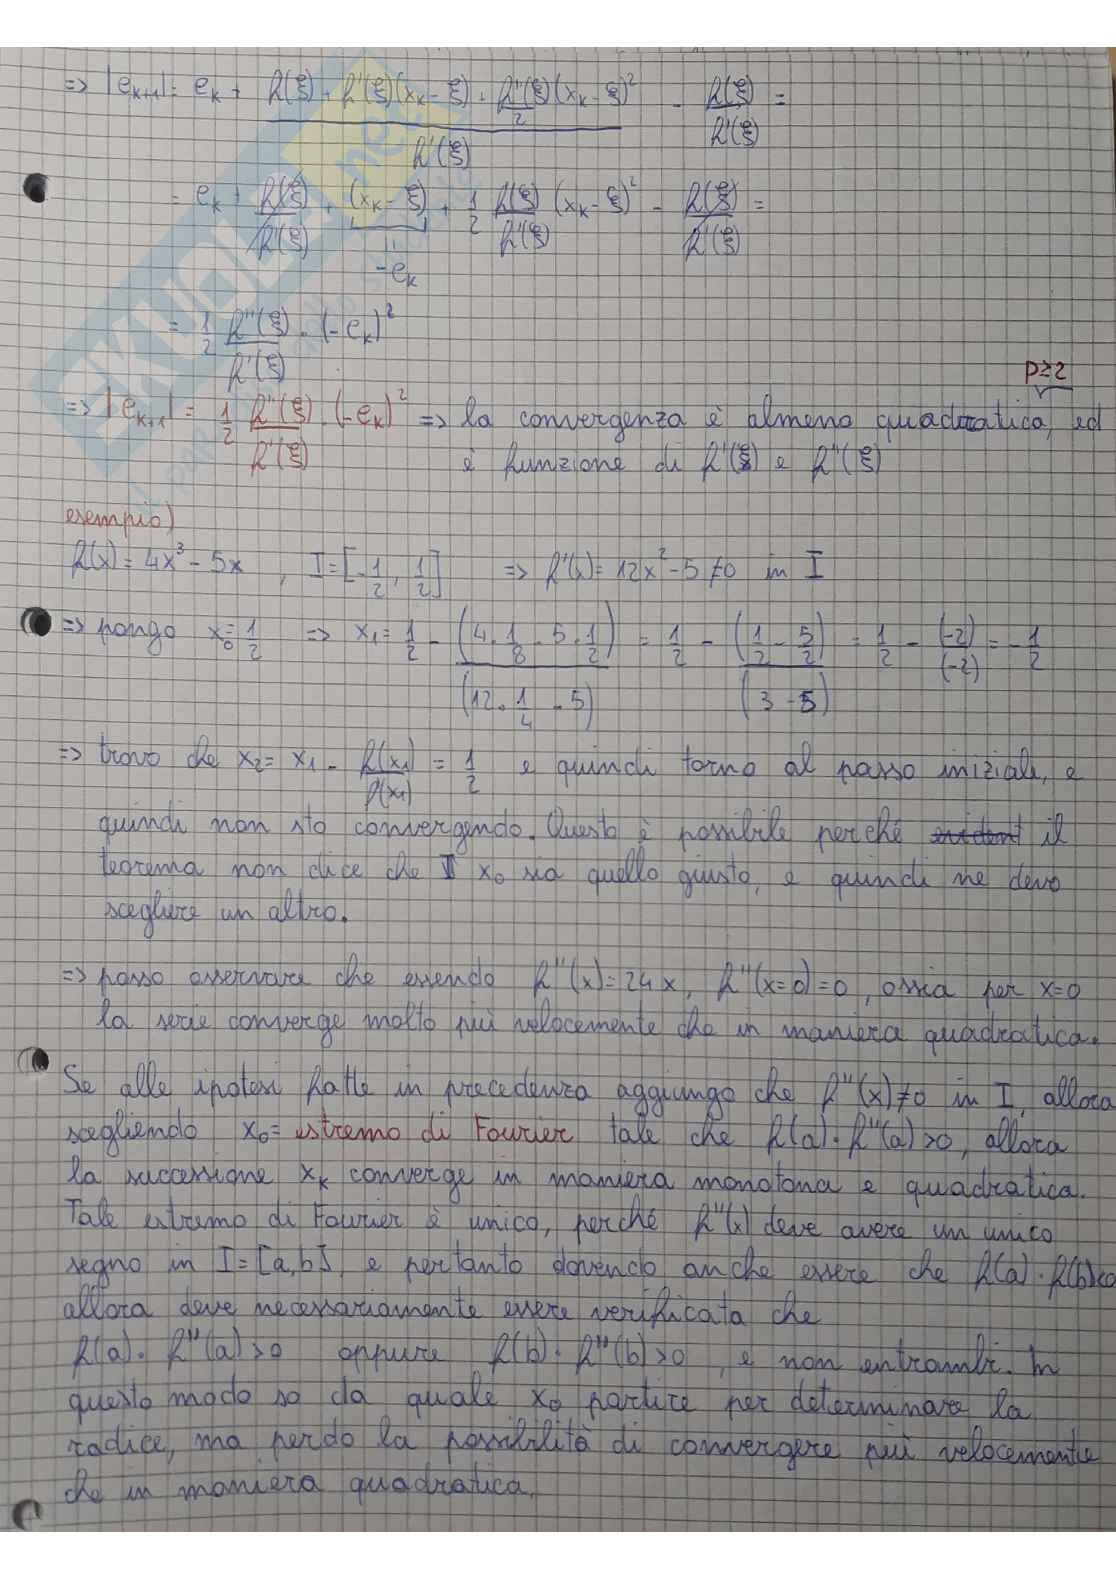 => |e_{k+1}| = e_k + (f(ξ) + f'(ξ)(x_k - ξ) + f''(ξ)/2 (x_k - ξ)²) / f'(ξ) - f(ξ)/f'(ξ) =
= e_k + f(ξ)/f'(ξ) + (x_k - ξ) + 1/2 f(ξ)/f'(ξ) (x_k - ξ)² - f(ξ)/f'(ξ) =
-e_k
= 1/2 f''(ξ)/f'(ξ) · (-e_k)²
p≥2
=> |e_{k+1}| = 1/2 f''(ξ)/f'(ξ) · (-e_k)² => la convergenza è almeno quadratica, ed
è funzione di f'(ξ) e f''(ξ)
esempio)
f(x) = 4x³ - 5x , I = [-1/2, 1/2] => f'(x) = 12x² - 5 ≠ 0 in I
=> pongo x₀ = 1/2 => x₁ = 1/2 - (4·1/8 - 5·1/2)/(12·1/4 - 5) = 1/2 - (1/2 - 5/2)/(3 - 5) = 1/2 - (-2)/(-2) = -1/2
=> trovo che x₂ = x₁ - f(x₁)/f'(x₁) = 1/2 e quindi torno al passo iniziale, e
quindi non sto convergendo. Questo è possibile perché il
teorema non dice che x₀ sia quello giusto, e quindi ne devo
scegliere un altro.
=> posso osservare che essendo f''(x) = 24x, f''(x=0) = 0, ossia per x=0
la serie converge molto più velocemente che in maniera quadratica.
Se alle ipotesi fatte in precedenza aggiungo che f''(x) ≠ 0 in I, allora
scegliendo x₀ = estremo di Fourier tale che f(a)·f''(a) > 0, allora
la successione x_k converge in maniera monotona e quadratica.
Tale estremo di Fourier è unico, perché f''(x) deve avere un unico
segno in I = [a,b], e pertanto dovendo anche essere che f(a)·f(b)<0
allora deve necessariamente essere verificata che
f(a)·f''(a) > 0 oppure f(b)·f''(b) > 0, e non entrambi. In
questo modo so da quale x₀ partire per determinare la
radice, ma perdo la possibilità di convergere più velocemente
che in maniera quadratica.